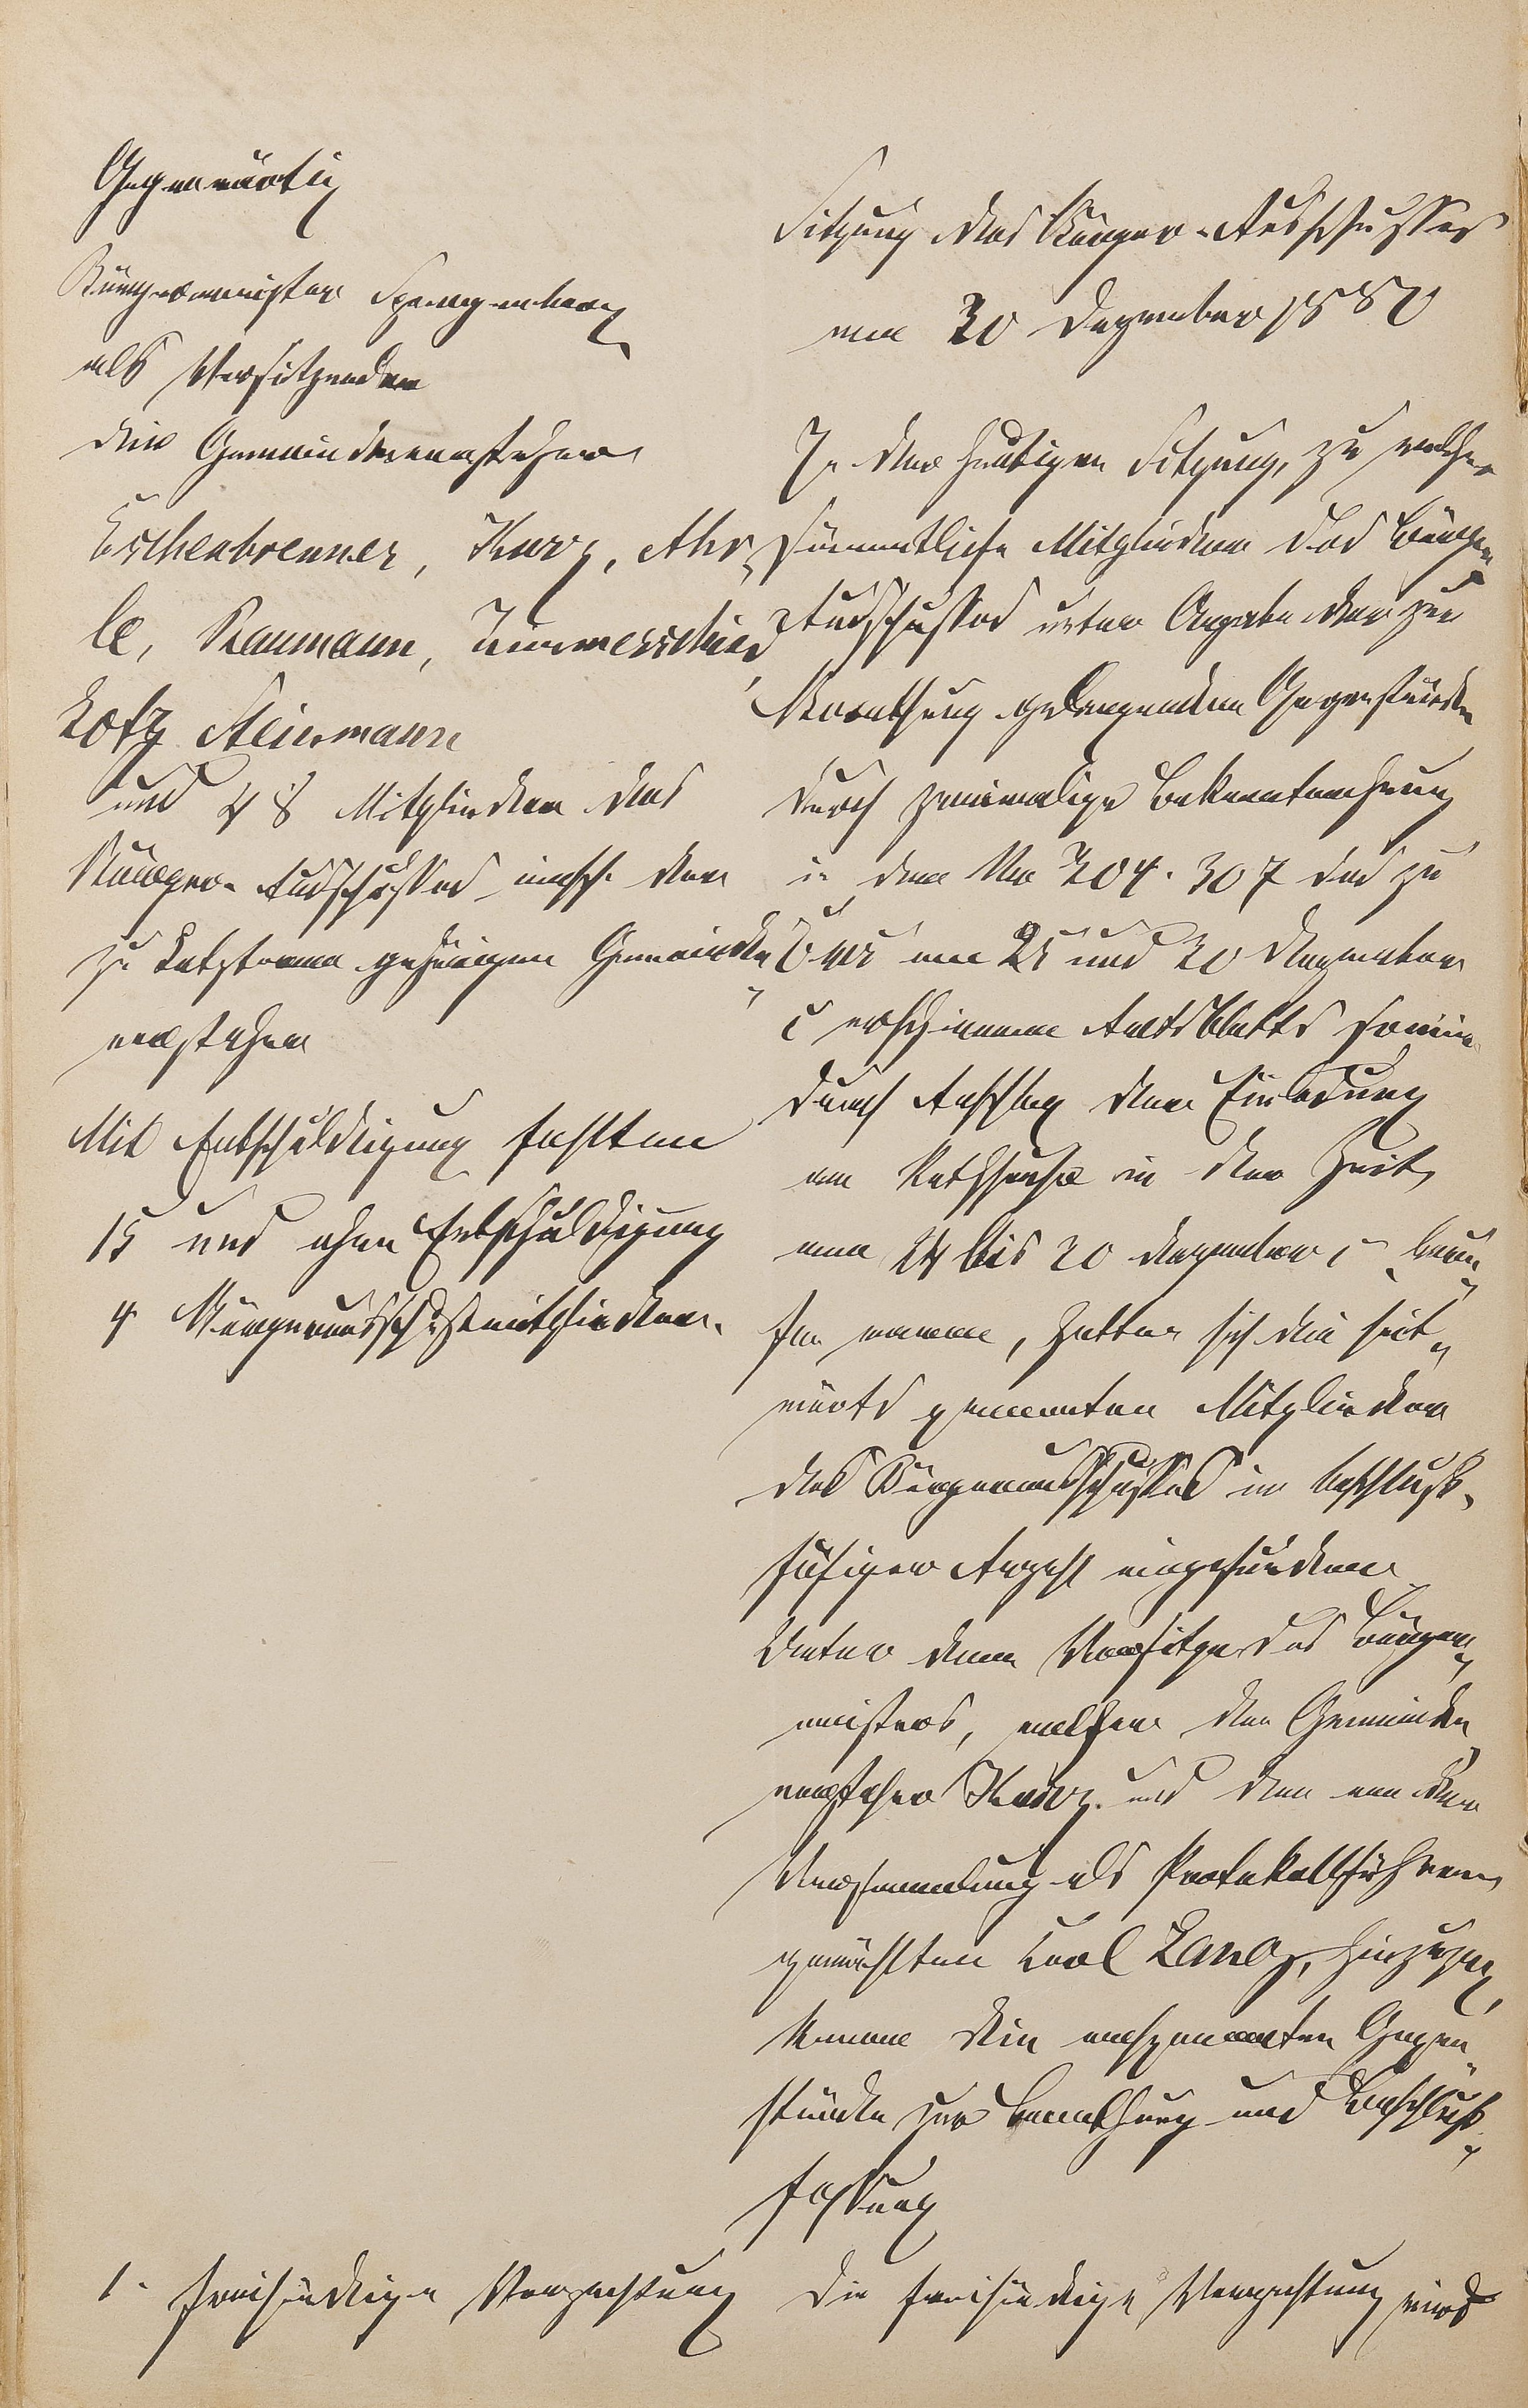 Gegenwärtig
Bürgermeister Spangenberg
als Vorsitzender
die Gemeindevorsteher
Eschenbrenner, Kurz, Ahr„
le, Raumann, Zimmerschied
Lotz Steinmann
und 48 Mitglieder des
Bürger-Ausschusses incl. der
zu Letzteren gehörigen Gemeinde„
vorsteher
Mit Entschuldigung fehlten
15 und ohne Entschuldigung
4 Bürgerausschußmitglieder.
Sitzung des Bürger-Ausschusses
vom 30 Dezember 1880
In der heutigen Sitzung, zu welcher
sämmtliche Mitglieder des Bürger„
Ausschusses unter Angabe der zur
Berathung gelangenden Gegenstände
durch zweimalige Bekanntmachung
in den Nro 304. 307 des zu
Ems am und 30 Dezember
c erschienenen Amtsblatts sowie
durch Anschlag der Einladung
am Rathhause in der Zeit
vom 24 bis 30 Dezember c beru„
fen waren, hatten sich die seit„
wärts genannten Mitglieder
des Bürgerausschusses in beschluß„
fähiger Anzahl eingefunden
Unter dem Vorsitze des Bürger„
meisters, welcher den Gemeinde„
vorsteher Kurz und den von der
Versammlung als Protokollführer
gewählten Carl Lang, hinzuzog,
kamen die nachgenannten Gegen„
stände zur Berathung und Beschluß„
fassung
1. freihändige Verpachtung
Die freihändige Verpachtung wird